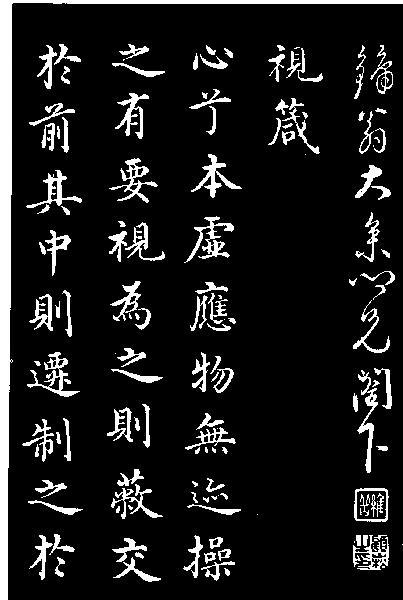 翁大兄閣下
視箴
心兮本虛應物無迹操
之有要視為之則蔽交
於前其中則遷制之於